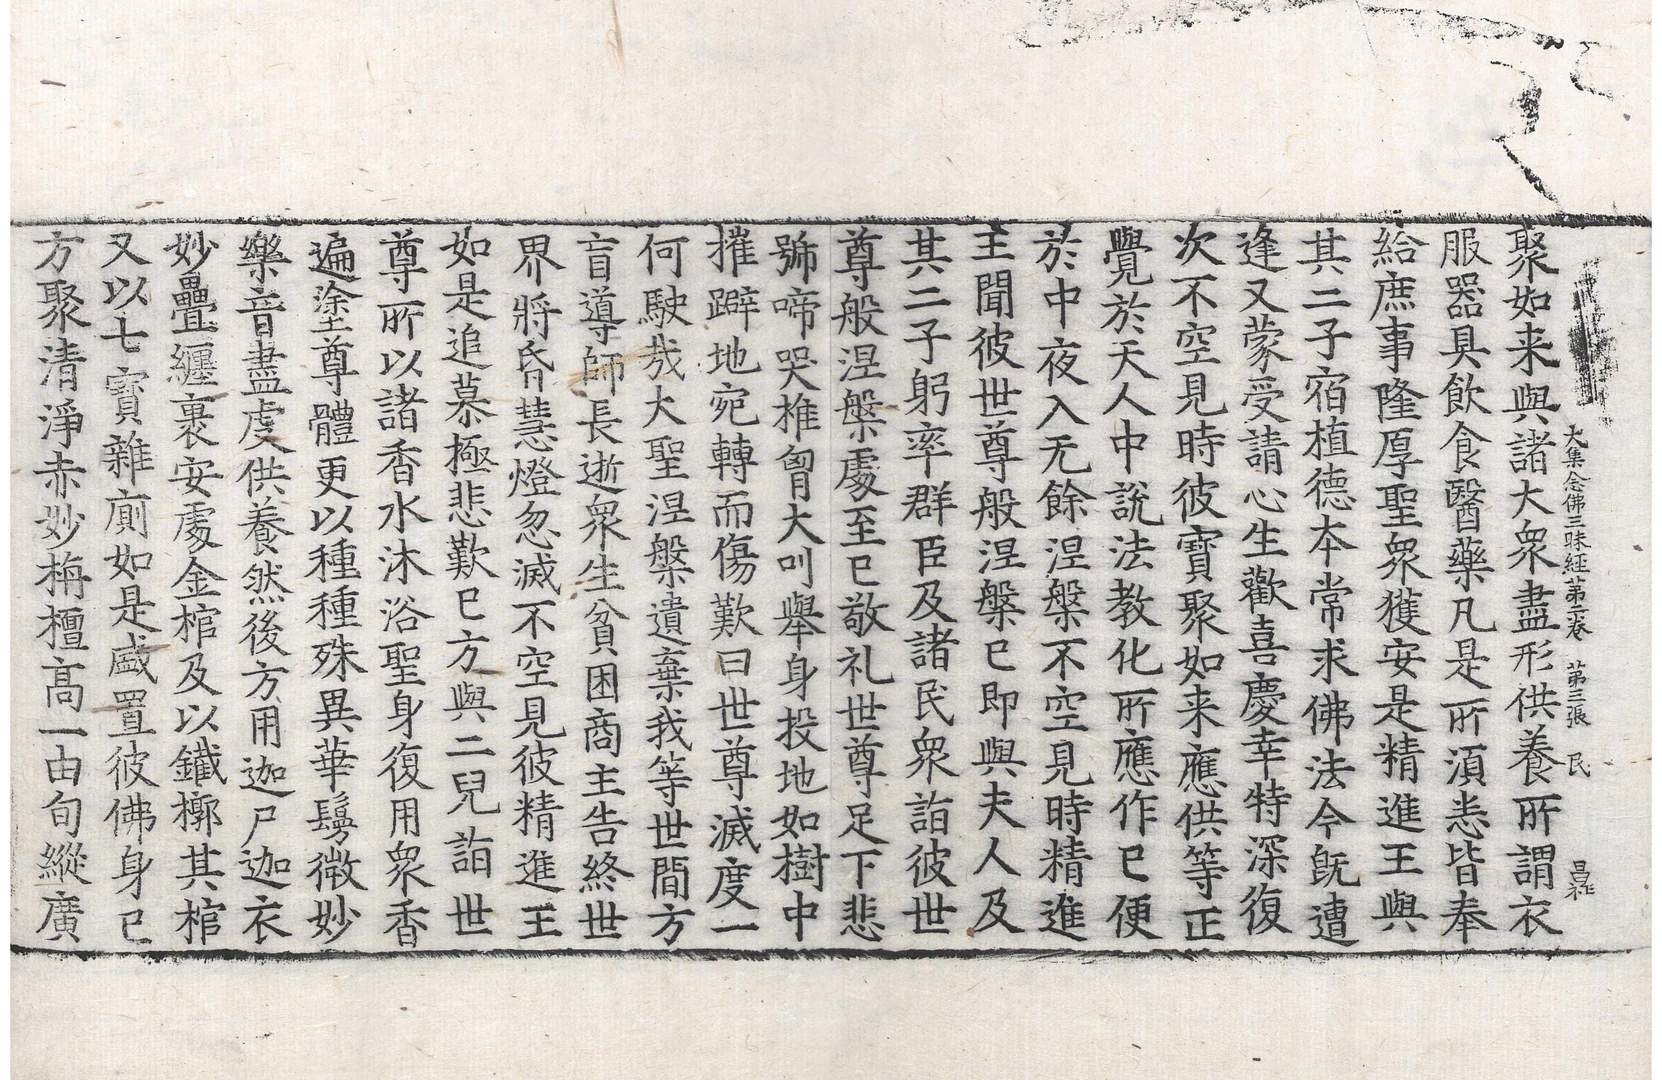 大集念佛三昧經第二卷 第三張 民
聚如来與諸大衆盡形供養所謂衣
服器具飲食醫藥凡是所湏悉皆奉
給庶事隆厚聖衆獲安是精進王與
其二子宿植德本常求佛法今旣遭
逢又蒙受請心生歡喜慶幸特深復
次不空見時彼寶聚如来應供等正
覺於天人中說法教化所應作已便
於中夜入无餘涅槃不空見時精進
王聞彼世尊般涅槃已即與夫人及
其二子躬率群臣及諸民衆詣彼世
尊般涅槃處至已敬礼世尊足下悲
號啼哭椎胷大叫舉身投地如樹中
摧躃地宛轉而傷歎曰世尊滅度一
何駛哉大聖涅槃遺棄我等世間方
盲導師長逝衆生貧困商主告終世
界將昏慧燈忽滅不空見彼精進王
如是追慕極悲歎已方與二兒詣世
尊所以諸香水沐浴聖身復用衆香
遍塗尊體更以種種殊異華鬘微妙
樂音盡虔供養然後方用迦尸迦衣
妙疊纏裹安處金棺及以鐵槨其棺
又以七寶雜廁如是盛置彼佛身已
方聚清淨赤妙栴檀高一由旬縱廣